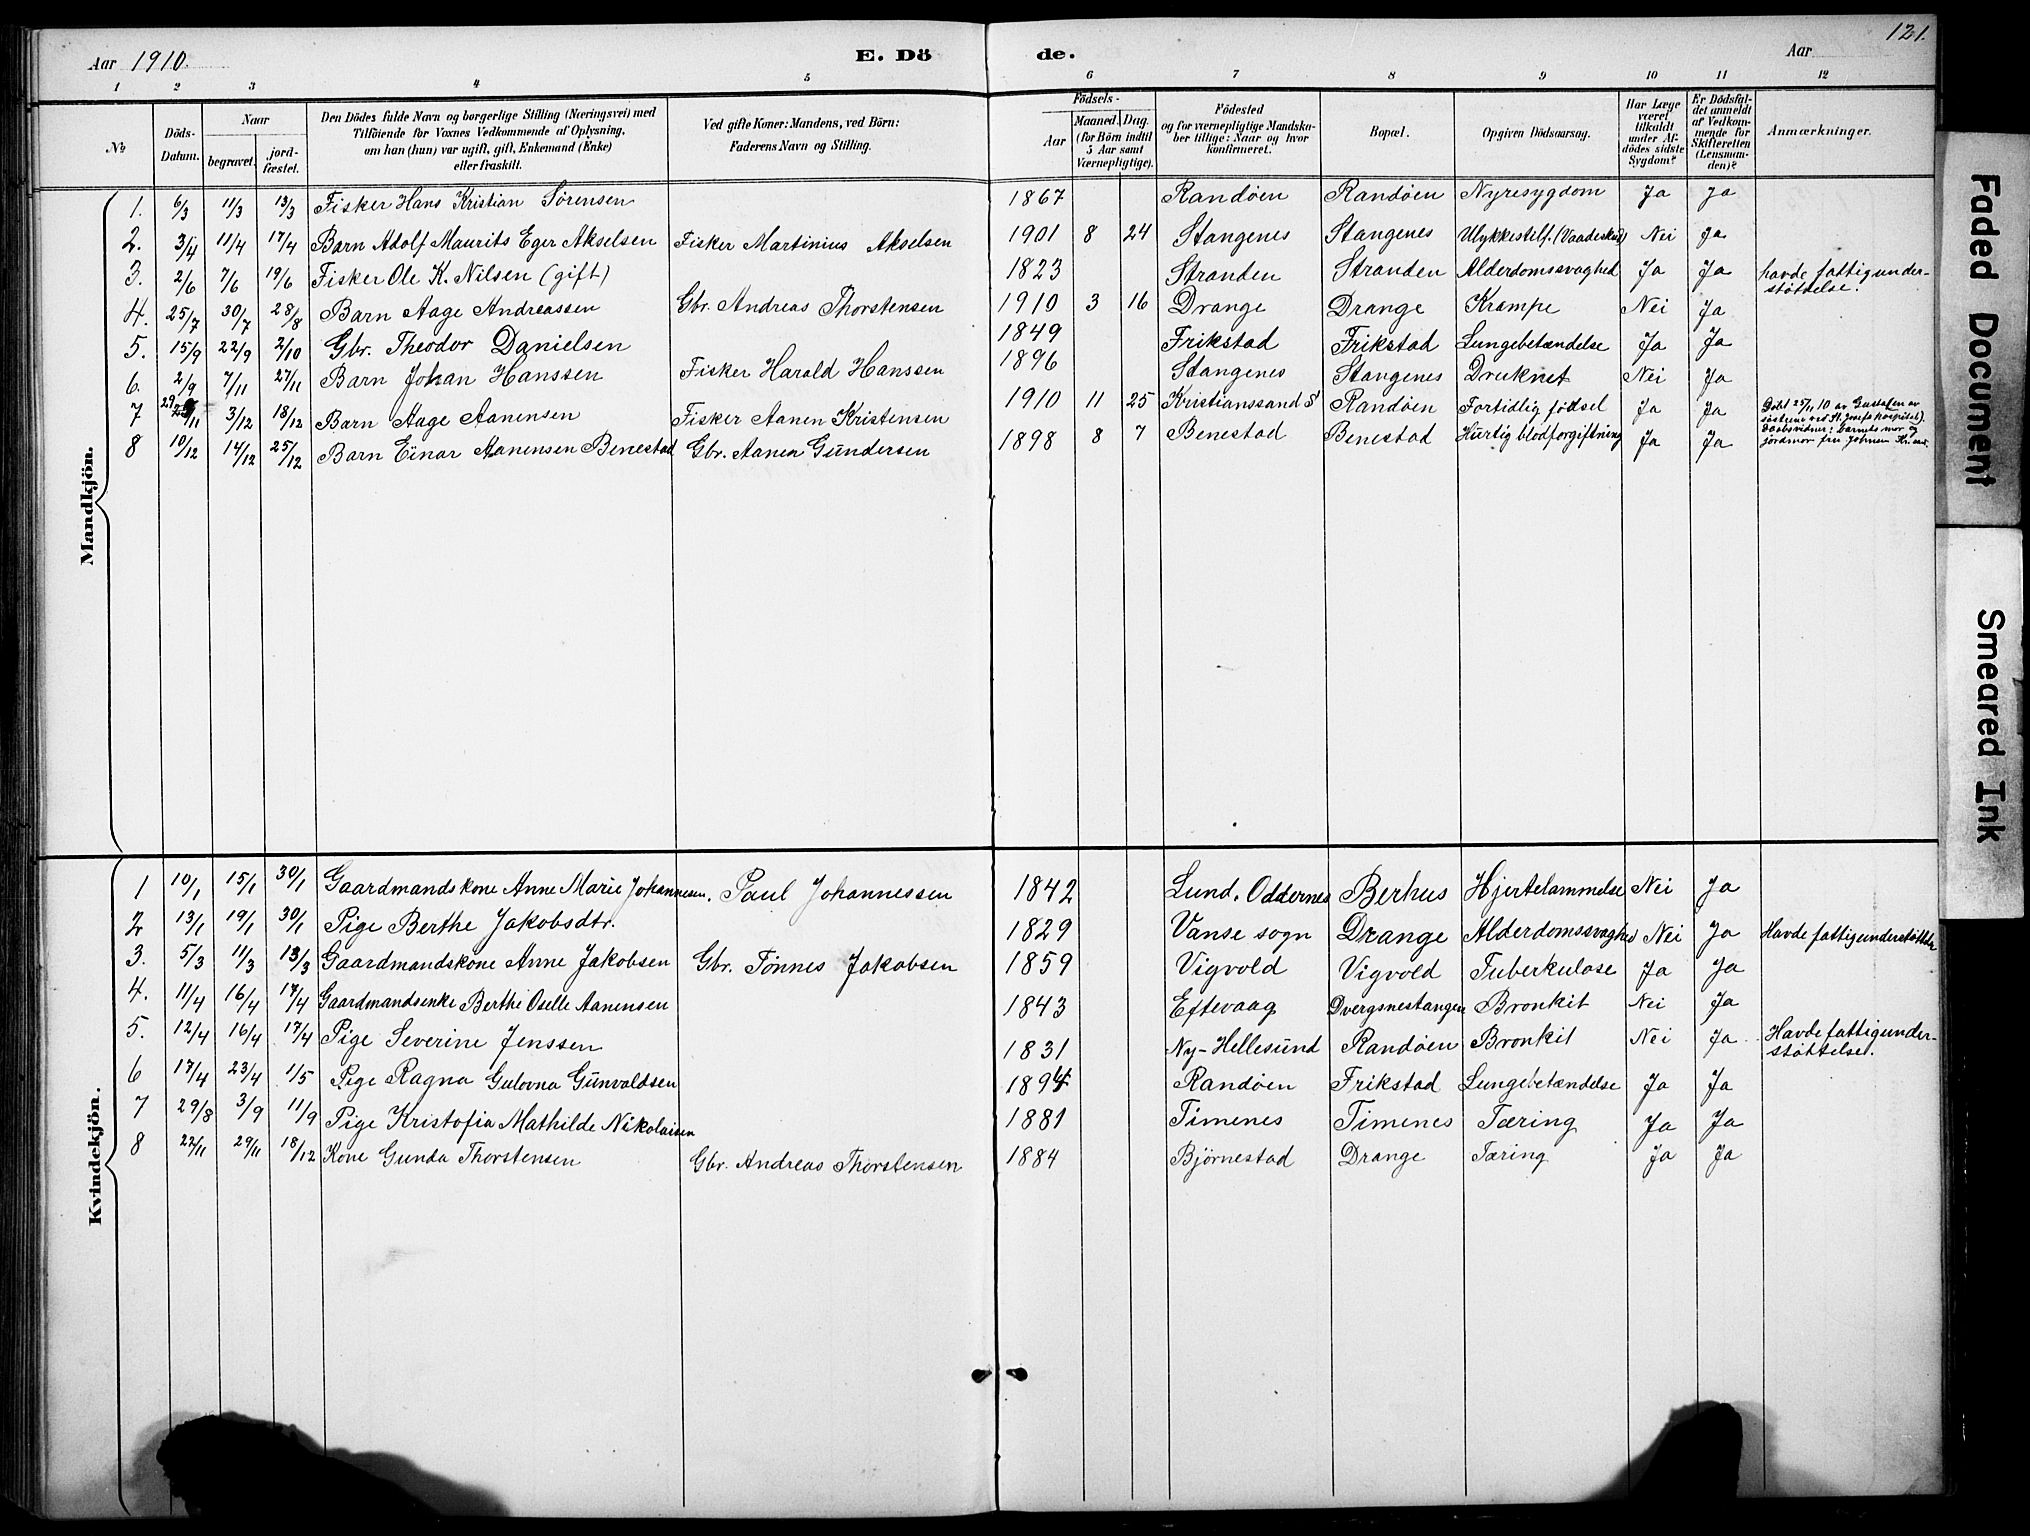 121.
Aar 1910. E. Dö de. Aar
1 2 3 4 5 6 7 8 9 10 11 12
№ Döds-Datum. Naar begravet. jordfæstet. Den Dödes fulde Navn og borgerlige Stilling (Næringsvei) med Tilföiende for Voxnes Vedkommende af Oplysning, om han (hun) var ugift, gift, Enkemand (Enke) eller fraskilt. Ved gifte Koner: Mandens, ved Börn: Faderens Navn og Stilling. Födsels- Aar Maaned. Dag. (for Börn indtil 5 Aar samt Værnepligtige). Födested og for værnepligtige Mandskaber tillige: Naar og hvor konfirmeret. Bopæl. Opgiven Dödsaarsag. Har Læge været tilkaldt under Afdödes sidste Sygdom? Er Dödsfaldet anmeldt af Vedkommende for Skifteretten (Lensmanden)? Anmærkninger.
Mandkjön.
1. 6/3 11/3 13/3 Fisker Hans Kristian Sörensen 1867 Randöen Randöen Nyresygdom Ja Ja
2. 3/4 11/4 17/4 Barn Adolf Maurits Eger Akselsen Fisker Martinius Akselsen 1901 8 24 Stangenes Stangenes Ulykkestilf. (Vaadeskud) Nei Ja
3. 2/6 7/6 19/6 Fisker Ole K. Nilsen (gift) 1823 Stranden Stranden Alderdomssvaghed Ja Ja havde fattigunder-
støttelse.
4. 25/7 30/7 28/8 Barn Aage Andreassen Gbr. Andreas Thorstensen 1910 3 16 Drange Drange Krampe Nei Ja
5. 15/9 22/9 2/10 Gbr. Theodor Danielsen 1849 Frikstad Frikstad Lungebetændelse Ja Ja
6. 2/9 7/11 27/11 Barn Johan Hanssen Fisker Harald Hanssen 1896 Stangenes Stangenes Druknet Nei Ja
7 29/11 3/12 18/12 Barn Aage Aanensen Fisker Aanen Kristensen 1910 11 25 Kristianssand S Randöen Fortidlig födsel Ja Ja Döbt 25/11 10 av Gustafen av
søstrene ved St. Josefs hospital).
Daabsvidner: barnets mor og
jordmor fru Johnsen Kr.sand.
8 10/12 14/12 25/12 Barn Einar Aanensen Benestad Gbr. Aanen Gundersen 1898 8 7 Benestad Benestad Hurtig blodforgiftning Ja Ja
Kvindekjön.
1 10/1 15/1 30/1 Gaardmandskone Anne Marie Johannesen. Paul Johannessen 1842 Lund. Oddernes Berhus Hjertelammelse Nei Ja
2 13/1 19/1 30/1 Pige Berthe Jakobsdtr. 1829 Vanse sogn Drange Alderdomssvaghed Nei Ja Havde fattigunderstøttelse
3. 5/3 11/3 13/3 Gaardmandskone Anne Jakobsen Gbr. Tönnes Jakobsen 1859 Vigvold Vigvold Tuberkulose Ja Ja
4. 11/4 16/4 17/4 Gaardmandsenke Berthe Oselle Aanensen 1843 Eftevaag Dvergsnestangen Bronkit Nei Ja
5. 12/4 16/4 17/4 Pige Severine Jenssen 1831 Ny-Hellesund Randöen Bronkit Nei Ja Havde fattigunder-
støttelse.
6 17/4 23/4 1/5 Pige Ragna Gulovna Gunvaldsen 1894 Randöen Frikstad Lungebetændelse Ja Ja
7 29/8 3/9 11/9 Pige Kristofia Mathilde Nikolaisen 1881 Timenes Timenes Tæring Ja Ja
8 22/11 29/11 18/12 Kone Gunda Thorstensen Gbr. Andreas Thorstensen 1884 Björnestad Drange Tæring Ja Ja
Faded Document
Smeared Ink